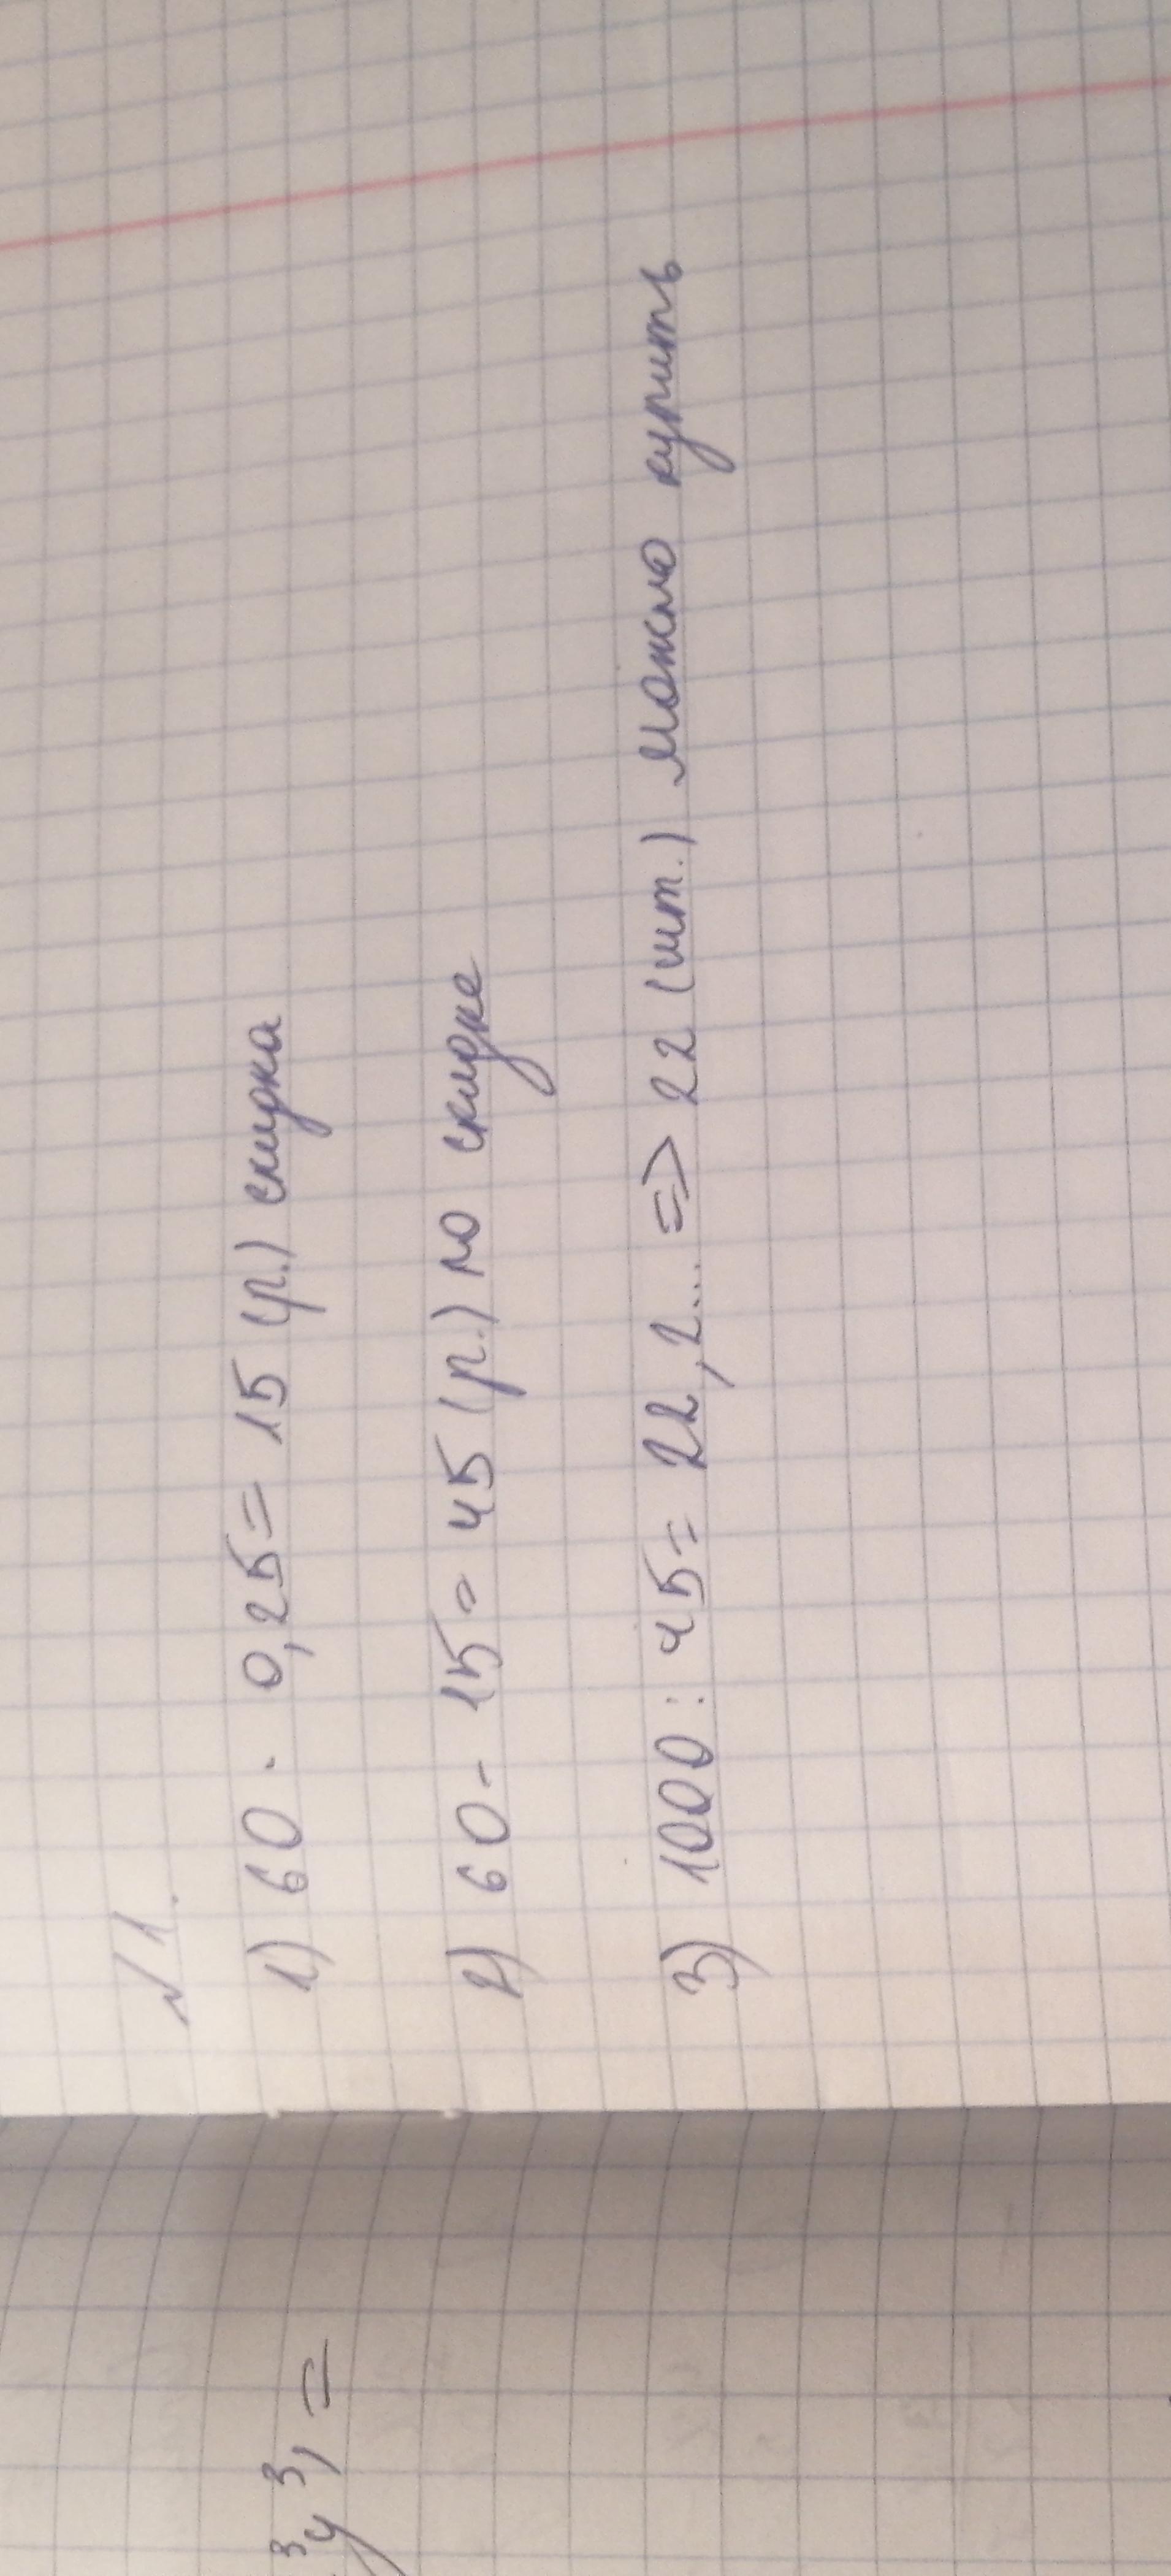 №1.
1) 60 · 0,25 = 15 (р.) скидка
2) 60 - 15 = 45 (р.) по скидке
3) 1000 : 45 = 22,2... => 22 (шт.) можно купить
³y³, =